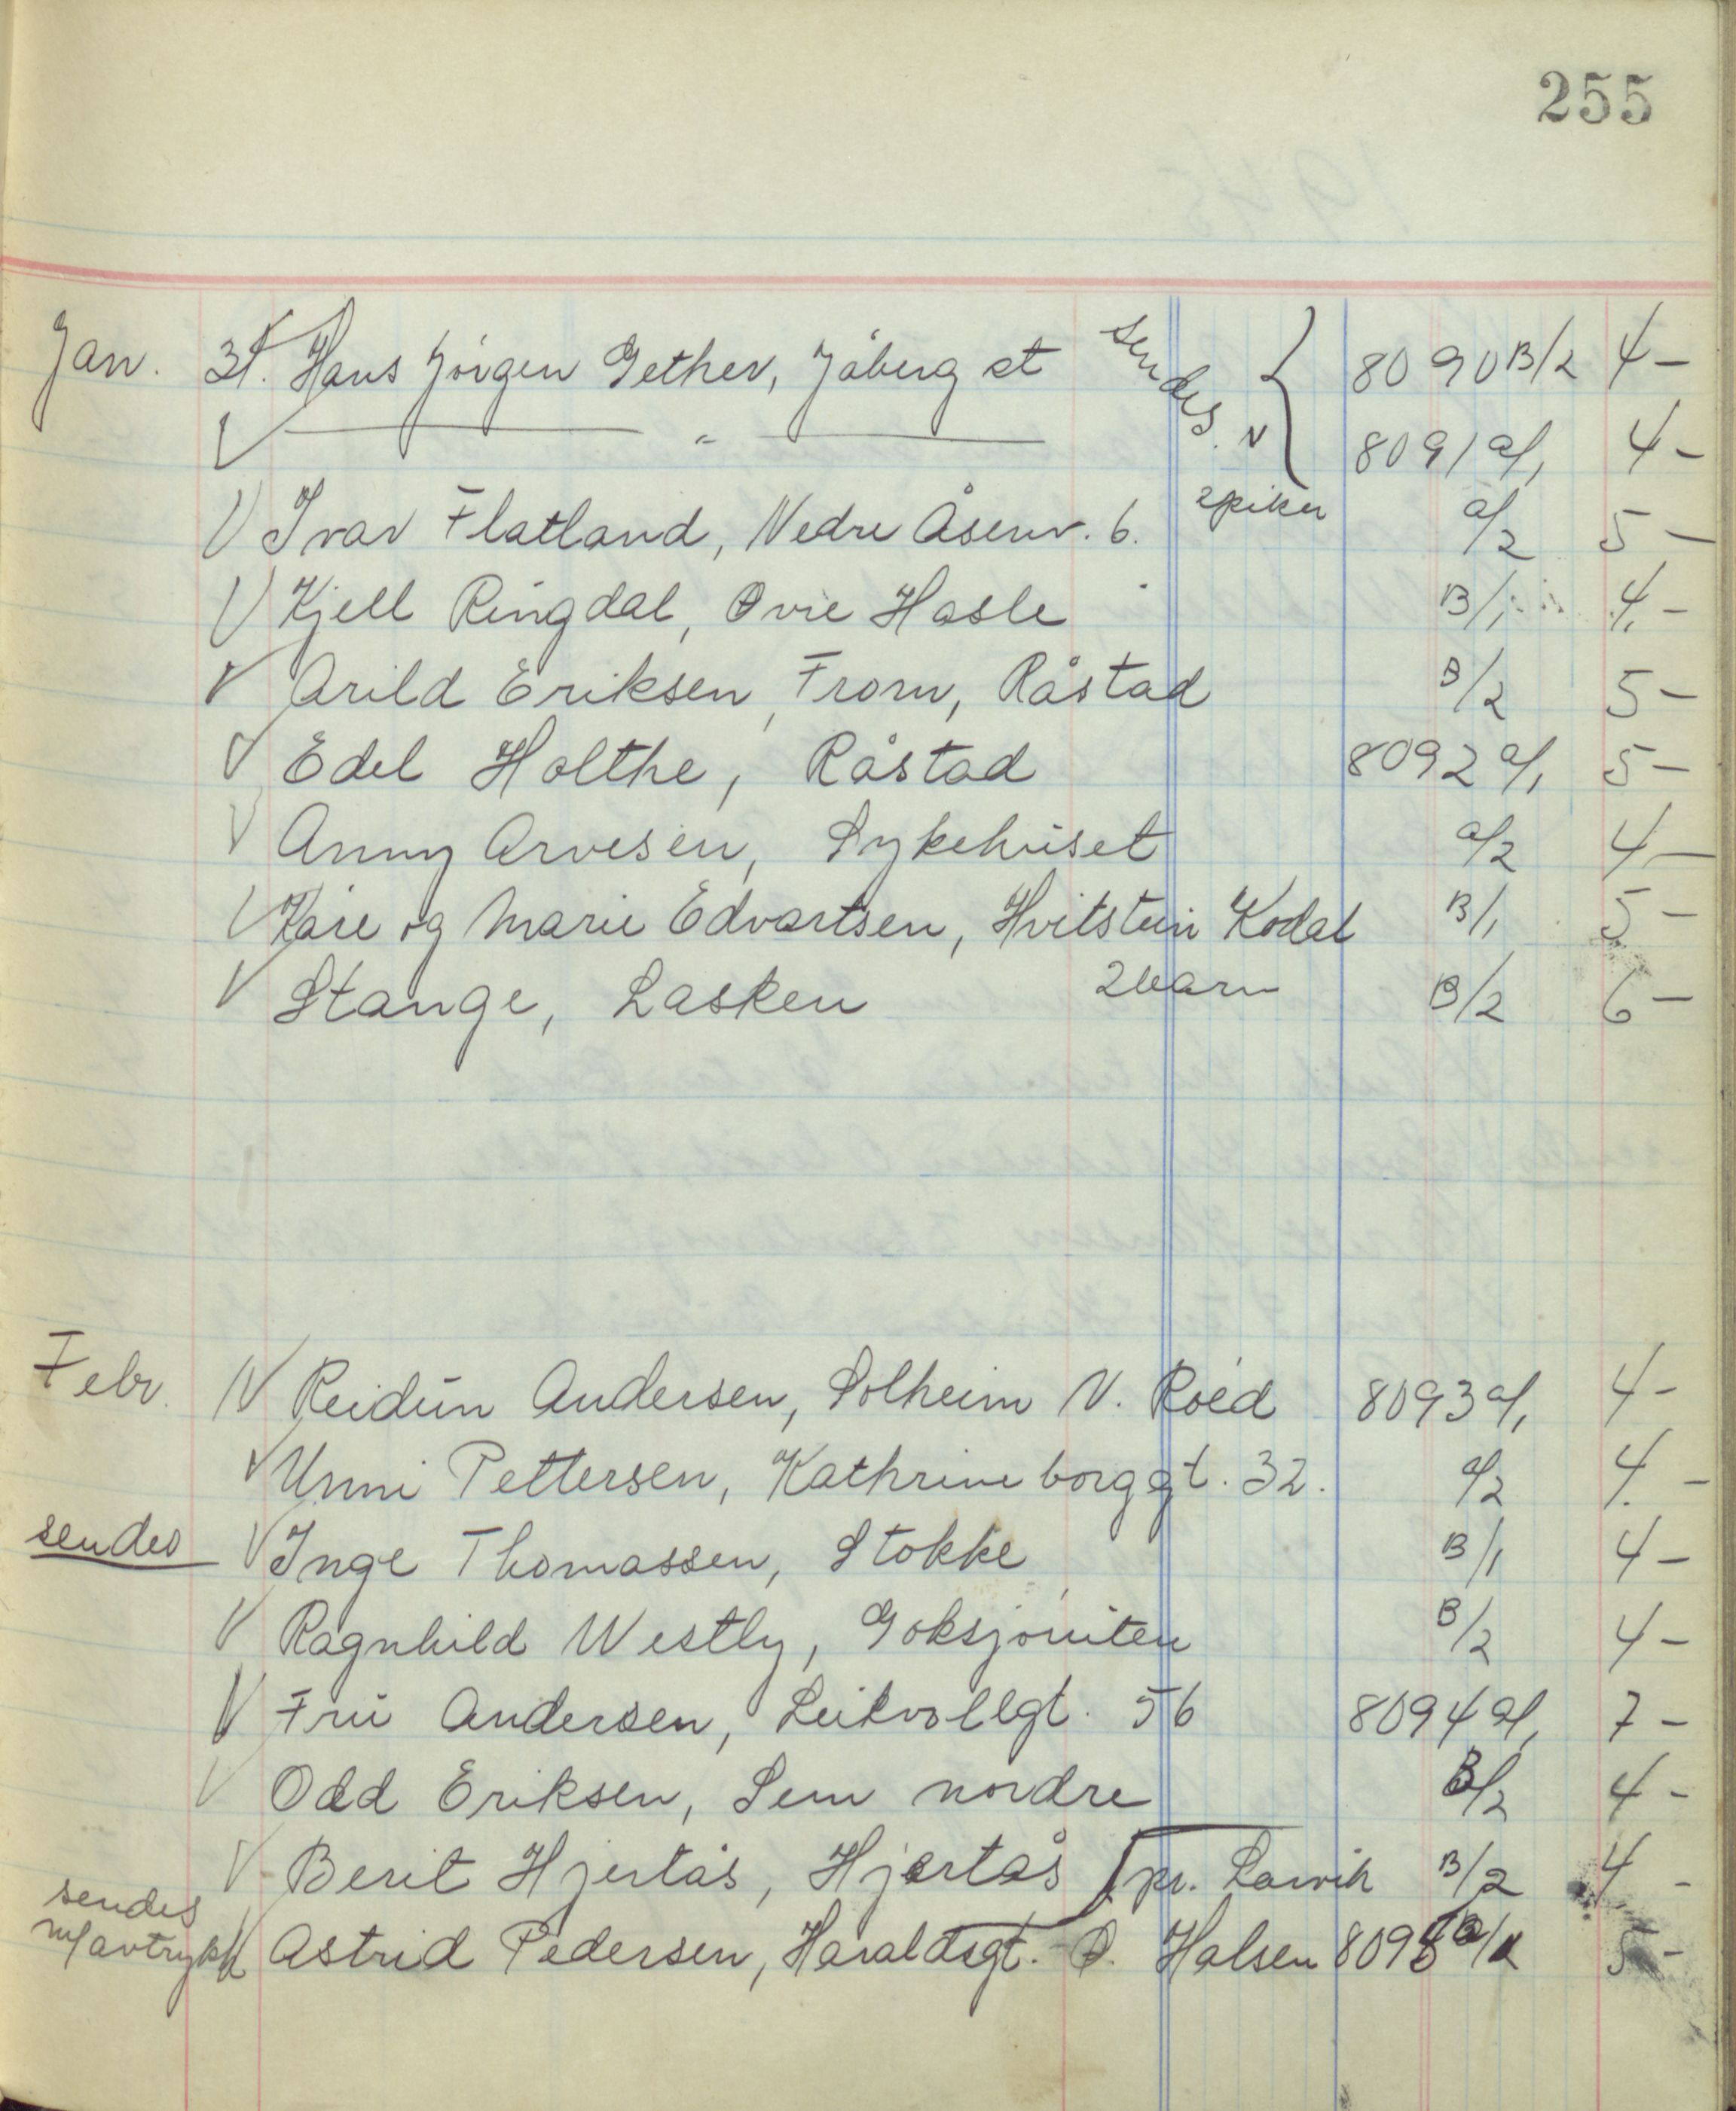 255
Jan. 31. Hans Jörgen Gether, Jåberg st sendes. 8090 B/2 4 -
V — " — V 8091 a/1 4 -
V Ivar Flatland, Nedre Åsenv. 6. 2 piker a/2 5 -
V Kjell Ringdal, Øvre Hasle B/1 4 -
V Arild Eriksen, From, Råstad B/2 5 -
V Edel Holthe, Råstad 8092 a/1 5 -
V Anny Arvesen, Sykehuset a/2 4 -
V Kåre og Marie Edvartsen, Hvitstein Kodal B/1 5 -
V Stange, Lasken 2 barn B/2 6 -
Febr. 1 V Reidun Andersen, Solheim N. Roed 8093 a/1 4 -
V Unni Pettersen, Kathrineborggt. 32. a/2 4 -
sendes V Inge Thomassen, Stokke B/1 4 -
V Ragnhild Westly, Goksjø B/2 4 -
V Fru Andersen, Leikvollgt. 56 8094 a/1 7 -
V Odd Eriksen, Sem nordre B/2 4 -
V Berit Hjertås, Hjertås pr. Larvik B/2 4 -
sendes m/avtrykk V Astrid Pedersen, Haraldsgt. Ø. Halsen 5 -